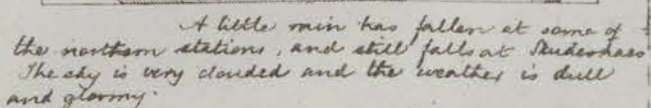 A little rain has fallen at some of
the northern stations, and still falls at Skudesnaes
The sky is very clouded and the weather is dull
and gloomy.